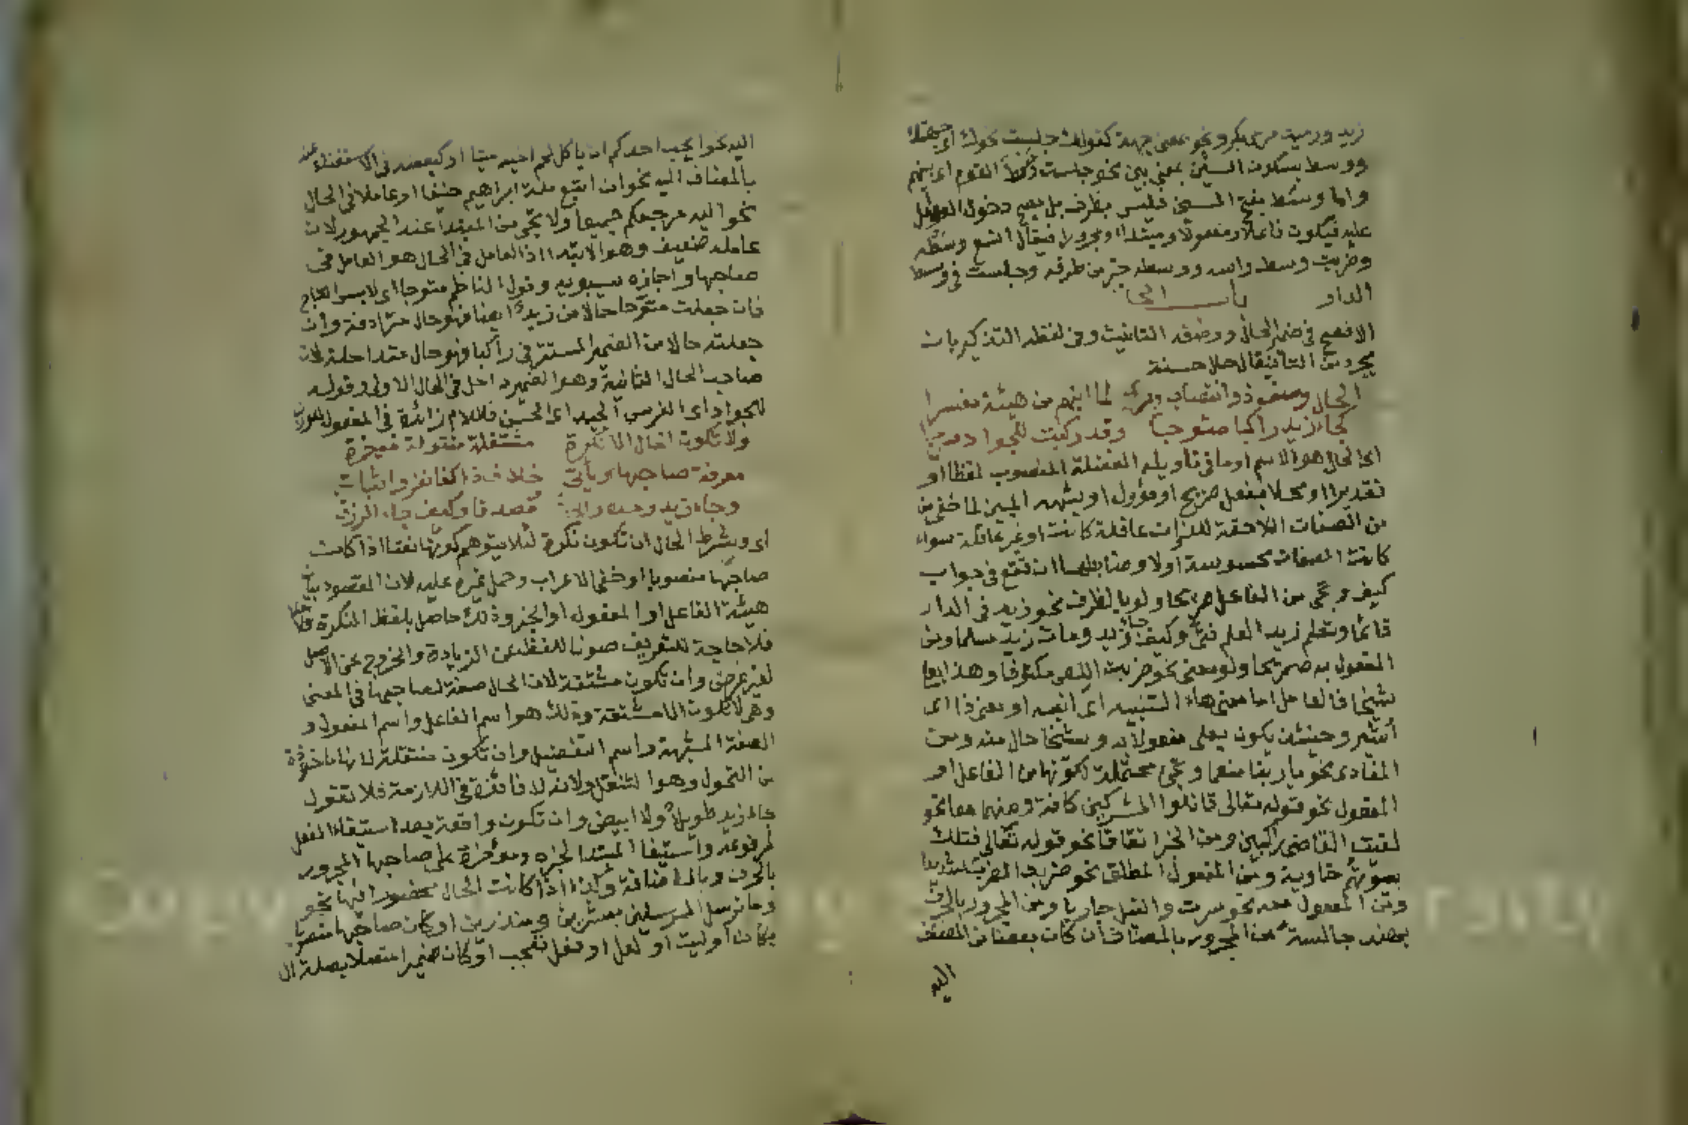 زيد ورميت مرمى بكر ونحو بمعنى جهة كقولك جلست نحوك أى جهتك
ووسط بسكون السين بمعنى بين نحو جلست وسط القوم اى بينهم
واما وسط بفتح السين فليس بظرف بل يصح دخول العوامل
عليه فيكون فاعلا ومفعولا ومبتداء ومجرورا فيقال اتسع وسطه
وضربت وسط راسه ووسطه خير من طرفه وجلست فى وسط
الدار باب الحال
الافصح فى ضمير الحال ووصفه التانيث وفى لفظه التذكير بان
يجرد من التا فيقال حال حسنة
الحال وصف ذو انتصاب لما انبهم من هيئة مفسرا
كجاء زيد راكبا متوجا وقد ركبت للجواد مسرجا
اى الحال هو الاسم او ما فى تاويله الفضلة المنصوب لفظا او
تقديرا او محلا بفعل صريح او مؤول او بشبهه المبين لما خفى
من الصفات اللاحقة للذوات عاقلة كانت او غير عاقلة سواء
كانت الصفات محسوسة اولا وضابطها ان تقع فى جواب
كيف وتجى من الفاعل صريحا ولو بالظرف نحو زيد فى الدار
قائما وتعلم زيد العلم وكيف جاء زيد ومات زيد مسلما ومن
المفعول به صريحا ولو معنى نحو ضربت اللص مكتوفا وهذا بعلى
شيخا فالعامل اما معنى هاء التنبيه اى انبه او معنى ذا اى
أشير وحينئذ يكون بعلى مفعولا به وشيخا حال منه ومن
المنادى نحو يا ربنا منعما وتجى محتملة لكونها من الفاعل او
المفعول نحو قوله تعالى قاتلوا المشركين كافة ومنهما معا نحو
لقيت القاضى راكبين ومن الخبر اتفاقا نحو قوله تعالى فتلك
بيوتهم خاوية ومن المفعول المطلق نحو ضربت الضرب شديدا
ومن المفعول معه نحو سرت والنيل جاريا ومن المجرور بالحرف
بهند جالسة ومن المجرور بالمضاف ان كان بعضا من المضاف
اليه
اليه نحو ايحب احدكم ان ياكل لحم اخيه ميتا او كبعضه فى الاستغناء عنه
بالمضاف اليه نحو ان اتبع ملة ابراهيم حنيفا او عاملا فى الحال
نحو اليه مرجعكم جميعا ولا تجى من المبتدا عند الجمهور لان
عامله ضعيف وهو الابتداء اذ العامل فى الحال هو العامل فى
صاحبها واجازه سيبويه وقول الناظم متوجا اى لابس التاج
فان جعلت متوجا حالا من زيد ايضا فهو حال مترادفة وان
جعلته حالا من الضمير المستتر فى راكبا فهو حال متداخلة لان
صاحب الحال الثانية وهو الضمير داخل فى الحال الاولى وقوله
للجواد اى الفرس الجيد اى الحسن فاللام زائدة فى المفعول
ولا تكون الحال الا نكرة مشتقة منتقلة مؤخرة
معرفة صاحبها وياتى خلاف ذا كفانفروا ثبات
وجاء زيد وحده قصد قا وكيف جاء الرزق
اى ويشترط الحال ان تكون نكرة لئلا يتوهم كونها نعتا اذا كانت
صاحبها منصوبا او خفى الاعراب وحمل غيره عليه لان المقصود بيان
هيئة الفاعل او المفعول او الخبر وذلك حاصل بلفظ النكرة
فلا حاجة للتعريف صونا للفظ عن الزيادة والخروج عن الاصل
لغير غرض وان تكون مشتقة لان الحال صفة لصاحبها فى المعنى
وهى لا تكون الا مشتقة وذلك هو اسم الفاعل واسم المفعول و
الصفة المشبهة واسم التفضيل وان تكون منتقلة لانها ماخوذة
من التحول وهو التنقل ولانه لا فائدة فى اللازمة فلا تقول
جاء زيد طويلا ولا ابيض وان تكون واقعة بعد استيفاء الفعل
لمرفوعه واستيفا المبتدا لخبره ومؤخرة على صاحبها المجرور
بالحرف وبالاضافة وكذا اذا كانت الحال محصورا فيها نحو
وما نرسل المرسلين الا مبشرين ومنذرين او كان صاحبها منصوبا
بكان او ليت او لعل او فعل تعجب او كان ضميرا متصلا بصلة ال